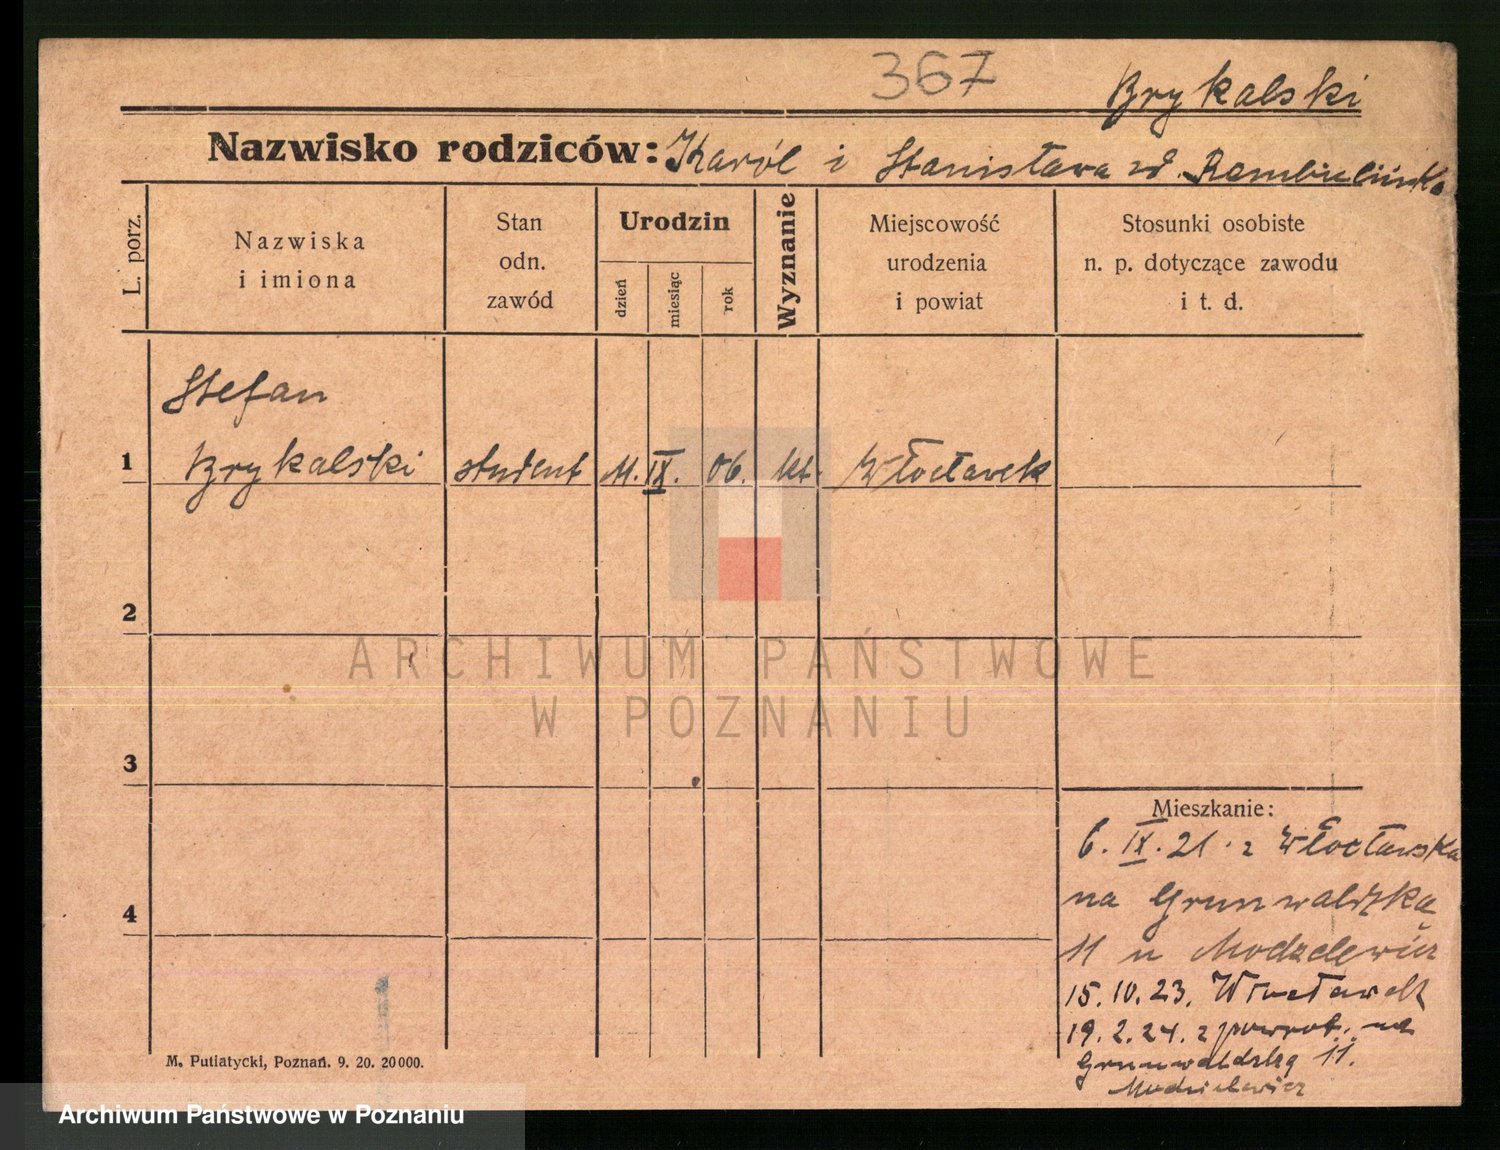 367
Brykalski
Nazwisko rodziców: Karól i Stanisława zd. Rembielińska
L. porz.
Nazwiska
i imiona
Stan
odn.
zawód
Urodzin
dzień
miesiąc
rok
Wyznanie
Miejscowość
urodzenia
i powiat
Stosunki osobiste
n. p. dotyczące zawodu
i t. d.
Stefan
1 Brykalski student 11. IX. 06. kt. Włocławek
2
ARCHIWUM PAŃSTWOWE
W POZNANIU
3
Mieszkanie:
6. IX. 21. z Włocławska
na Grunwaldzką
4
11 u Modzelewicz
15.10.23. Włocławek
19.2.24. z powrot. na
Grunwaldzką 11.
Modzielewicz
M. Putiatycki, Poznań. 9. 20. 20000.
Archiwum Państwowe w Poznaniu